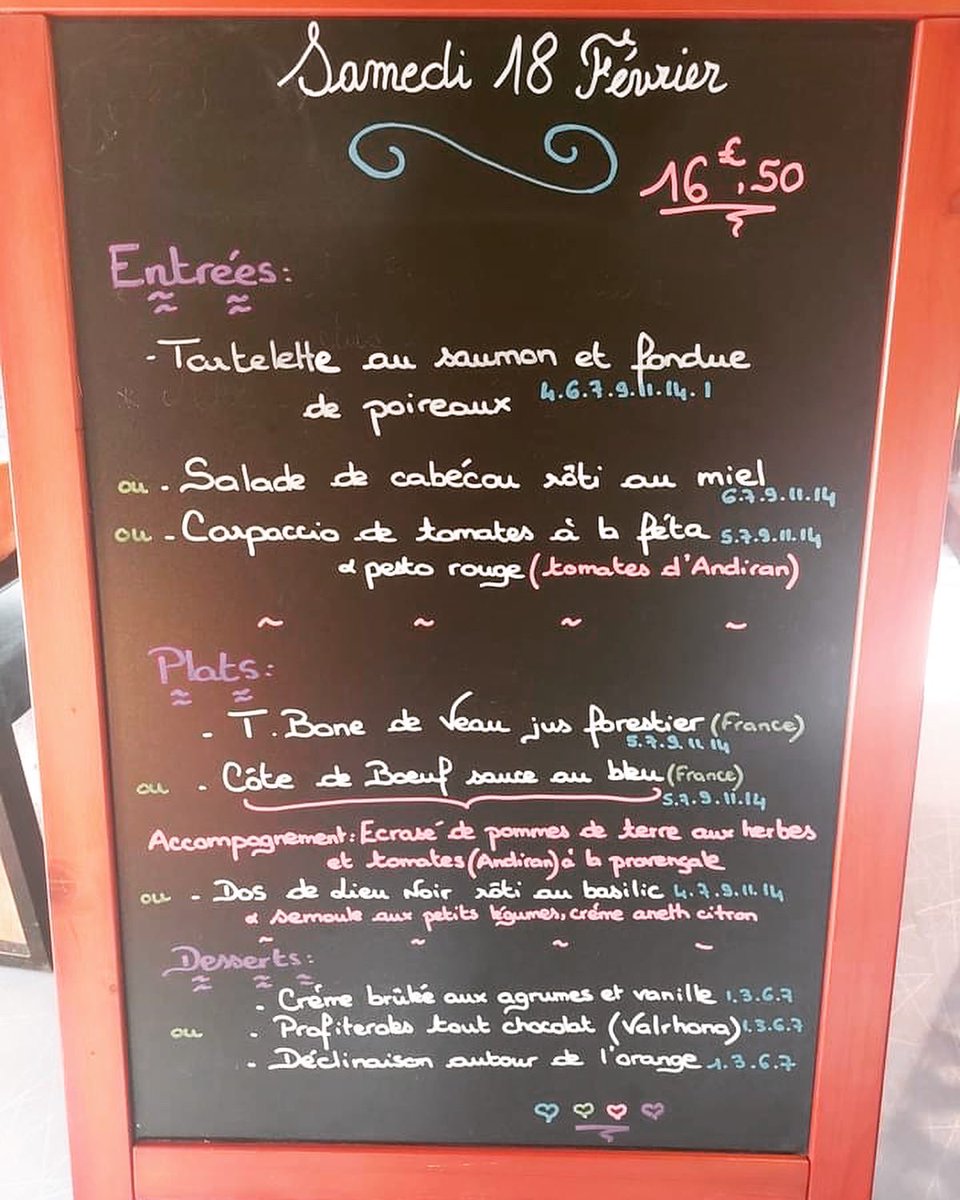 Samedi 18 Février
16€.50
Entrées:
- Tartelette au saumon et fondue
de poireaux 4.6.7.9.11.14.1
ou . Salade de cabécou rôti au miel
6.7.9.11.14
ou - Carpaccio de tomates à la féta 5.7.9.11.14
& pesto rouge (tomates d'Andiran)
~ ~ ~ ~
Plats:
- T.Bone de Veau jus forestier (France)
5.7.9.11.14
ou . Côte de Boeuf sauce au bleu (France)
5.7.9.11.14
Accompagnement: Ecrasé de pommes de terre aux herbes
et tomates (Andiran) à la provençale
ou - Dos de Lieu Noir rôti au basilic 4.7.9.11.14
& semoule aux petits légumes, créme aneth citron
~ ~ ~ ~
Desserts:
. Créme brûlée aux agrumes et vanille 1.3.6.7
ou . Profiteroles tout chocolat (Valrhona) 1.3.6.7
- Déclinaison autour de l'orange 1.3.6.7